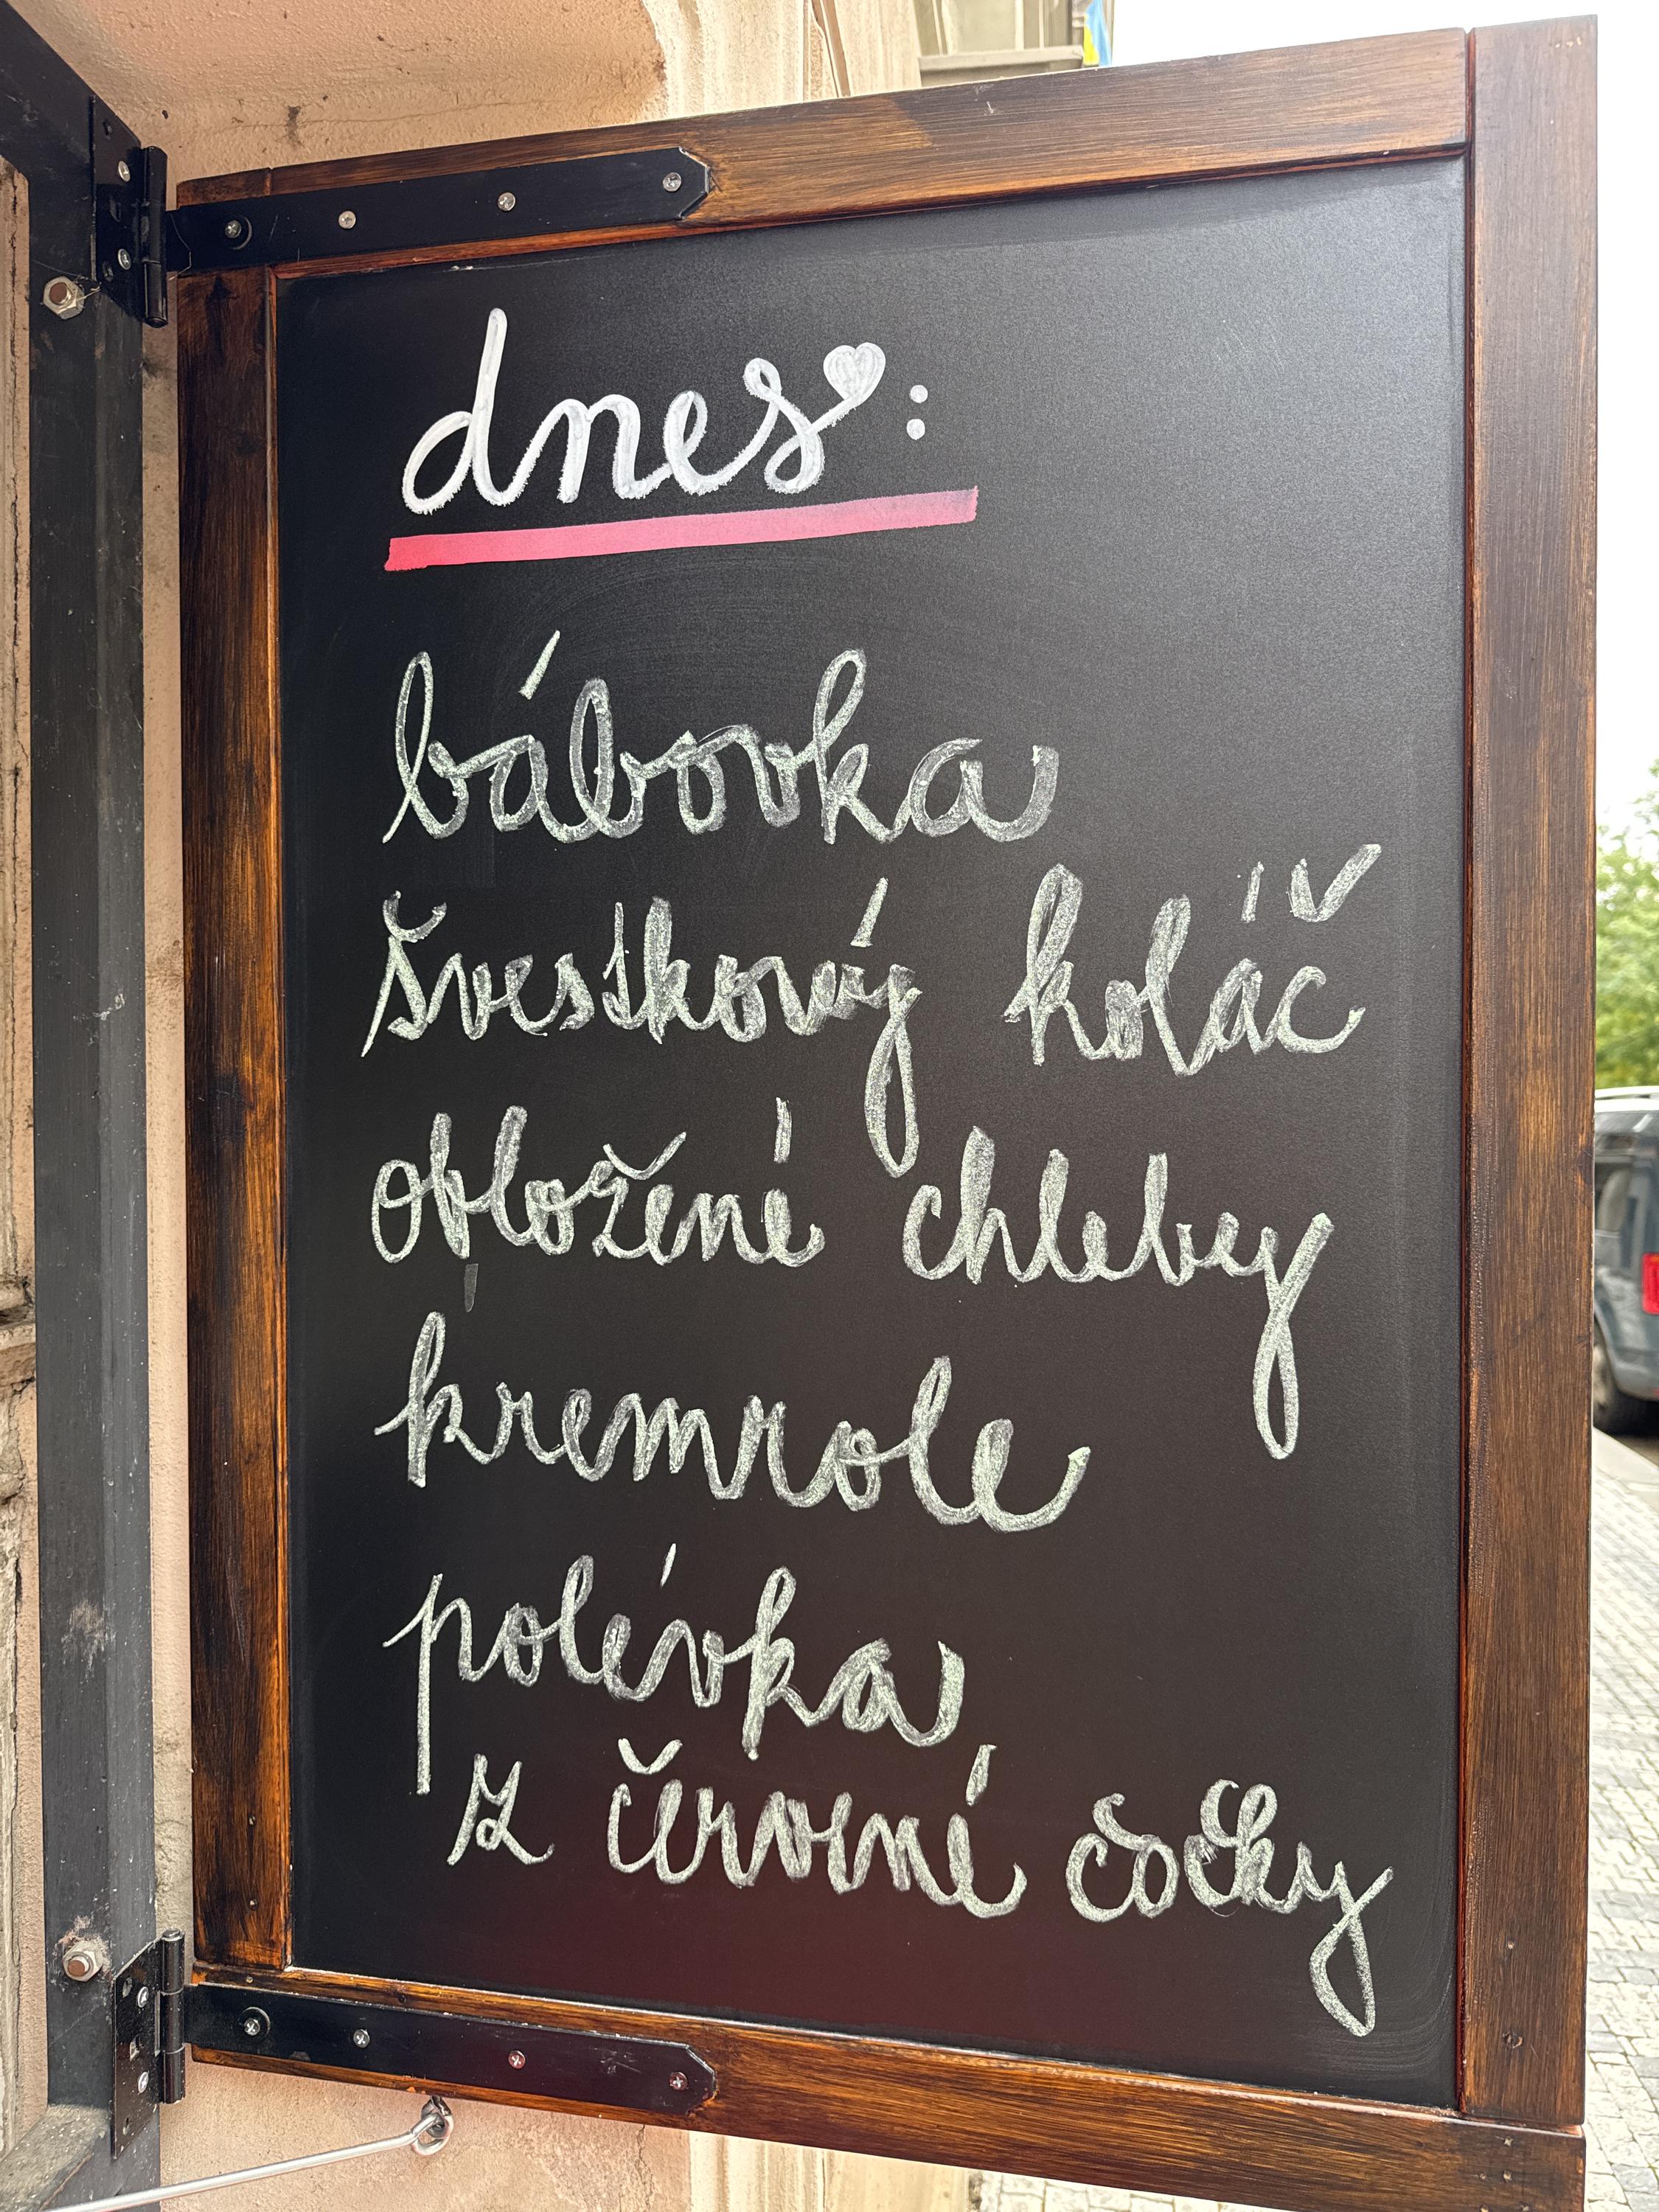 dnes:
bábovka
švestkový koláč
obložené chleby
kremrole
polévka
z červené čočky